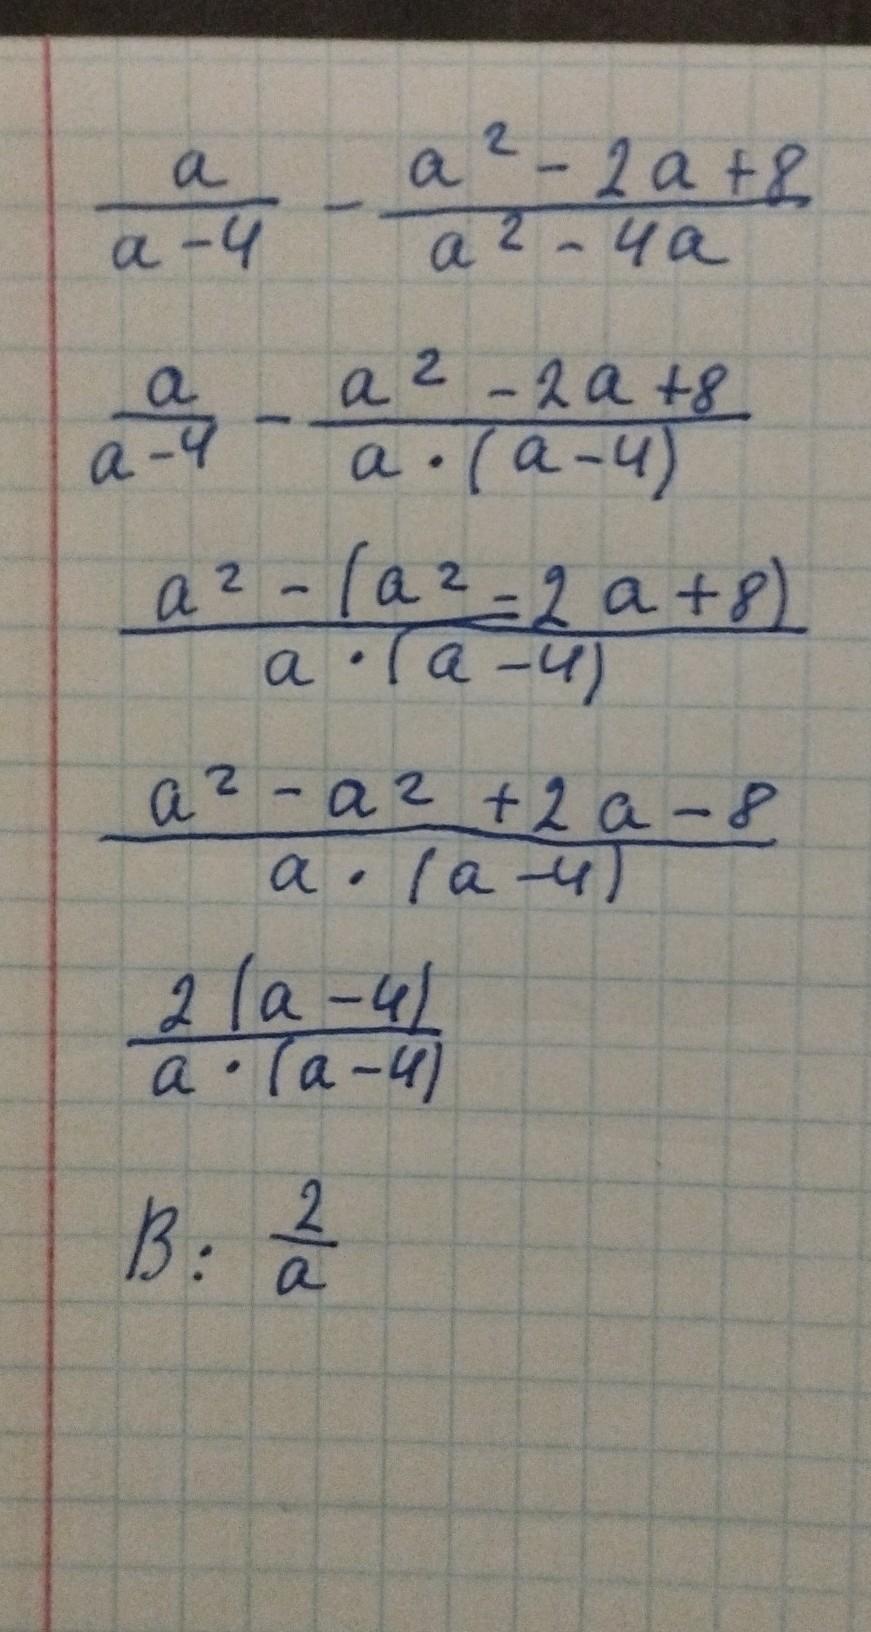 a/(a-4) - (a² - 2a + 8)/(a² - 4a)
a/(a-4) - (a² - 2a + 8)/(a · (a-4))
(a² - (a² = 2a + 8))/(a · (a-4))
(a² - a² + 2a - 8)/(a · (a-4))
2(a-4)/(a · (a-4))
В: 2/a